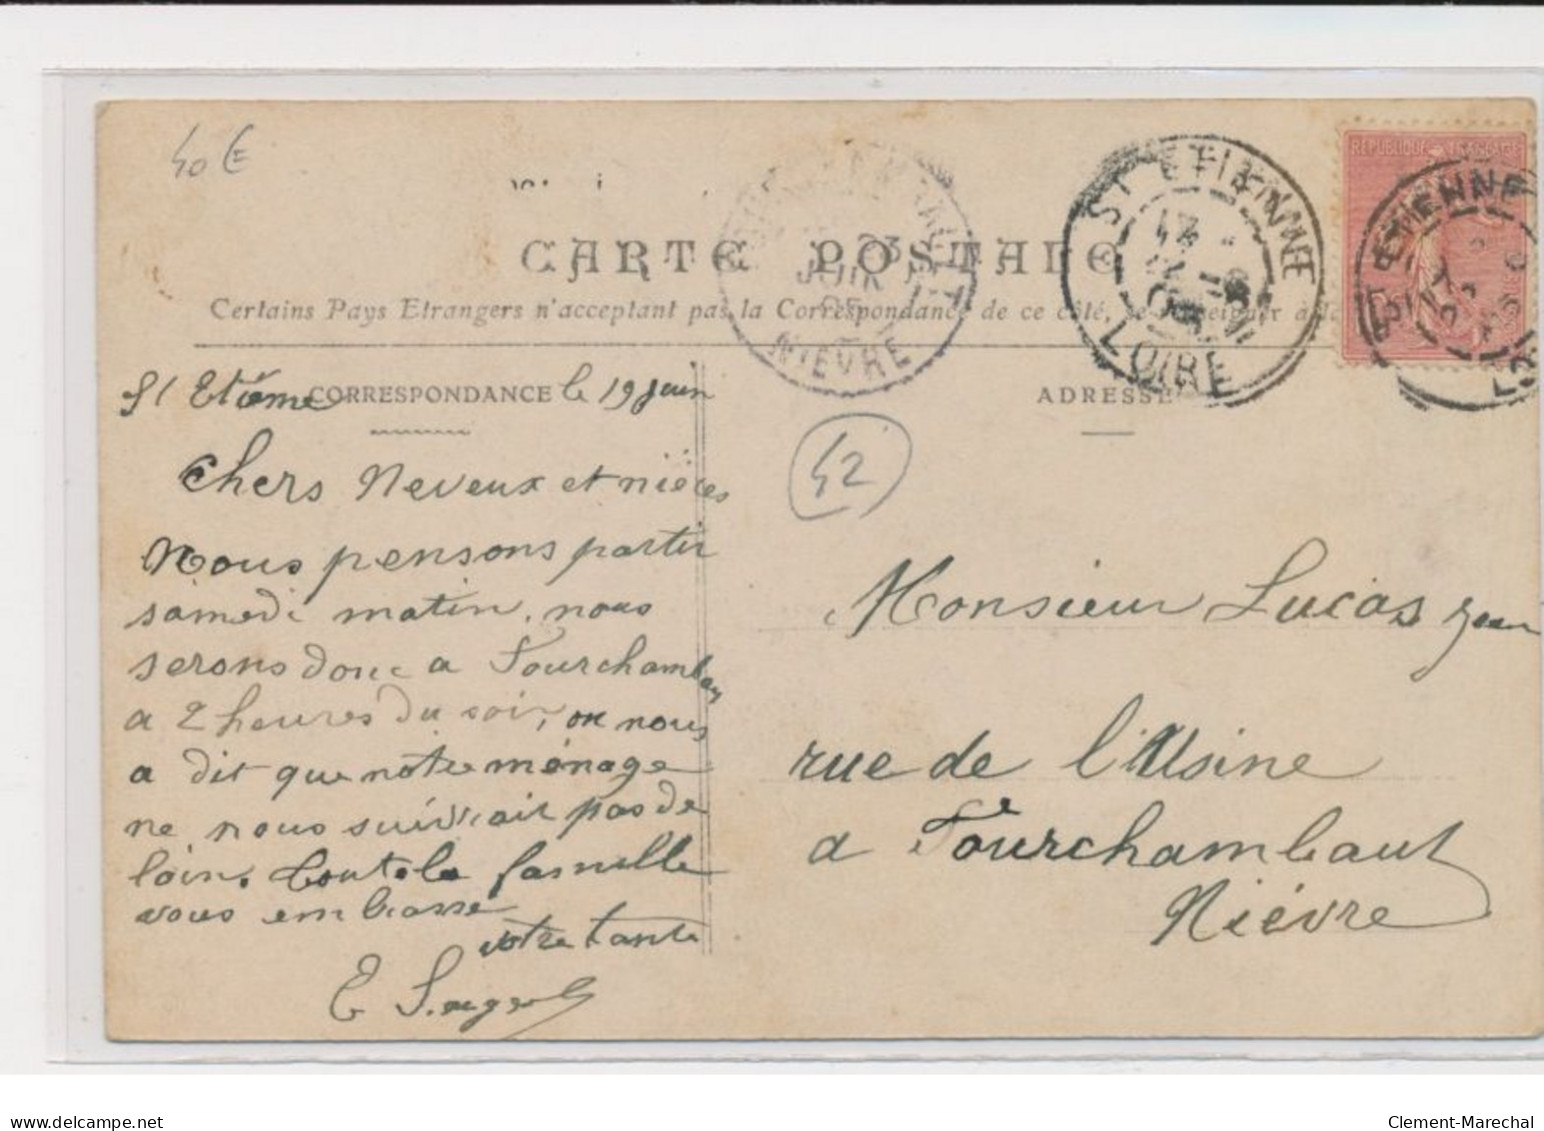 40 €
CARTE POSTALE
Certains Pays Etrangers n'acceptant pas la Correspondance de ce côté, se
CORRESPONDANCE
ADRESSE
ST ETIENNE
LOIRE
JUIN
NIEVRE
REPUBLIQUE FRANÇAISE
ST ETIENNE
42
St Etienne le 19 juin
Chers Neveux et nièces
Nous pensons partir
samedi matin, nous
serons donc a Fourchambau
a 2 heures du soir, on nous
a dit que notre ménage
ne nous suivrait pas de
loin. toute la famille
vous embrasse
votre tante
E
Monsieur Lucas Jean
rue de l'Usine
a Fourchambault
Nièvre
delcampe.net
Clement-Marechal